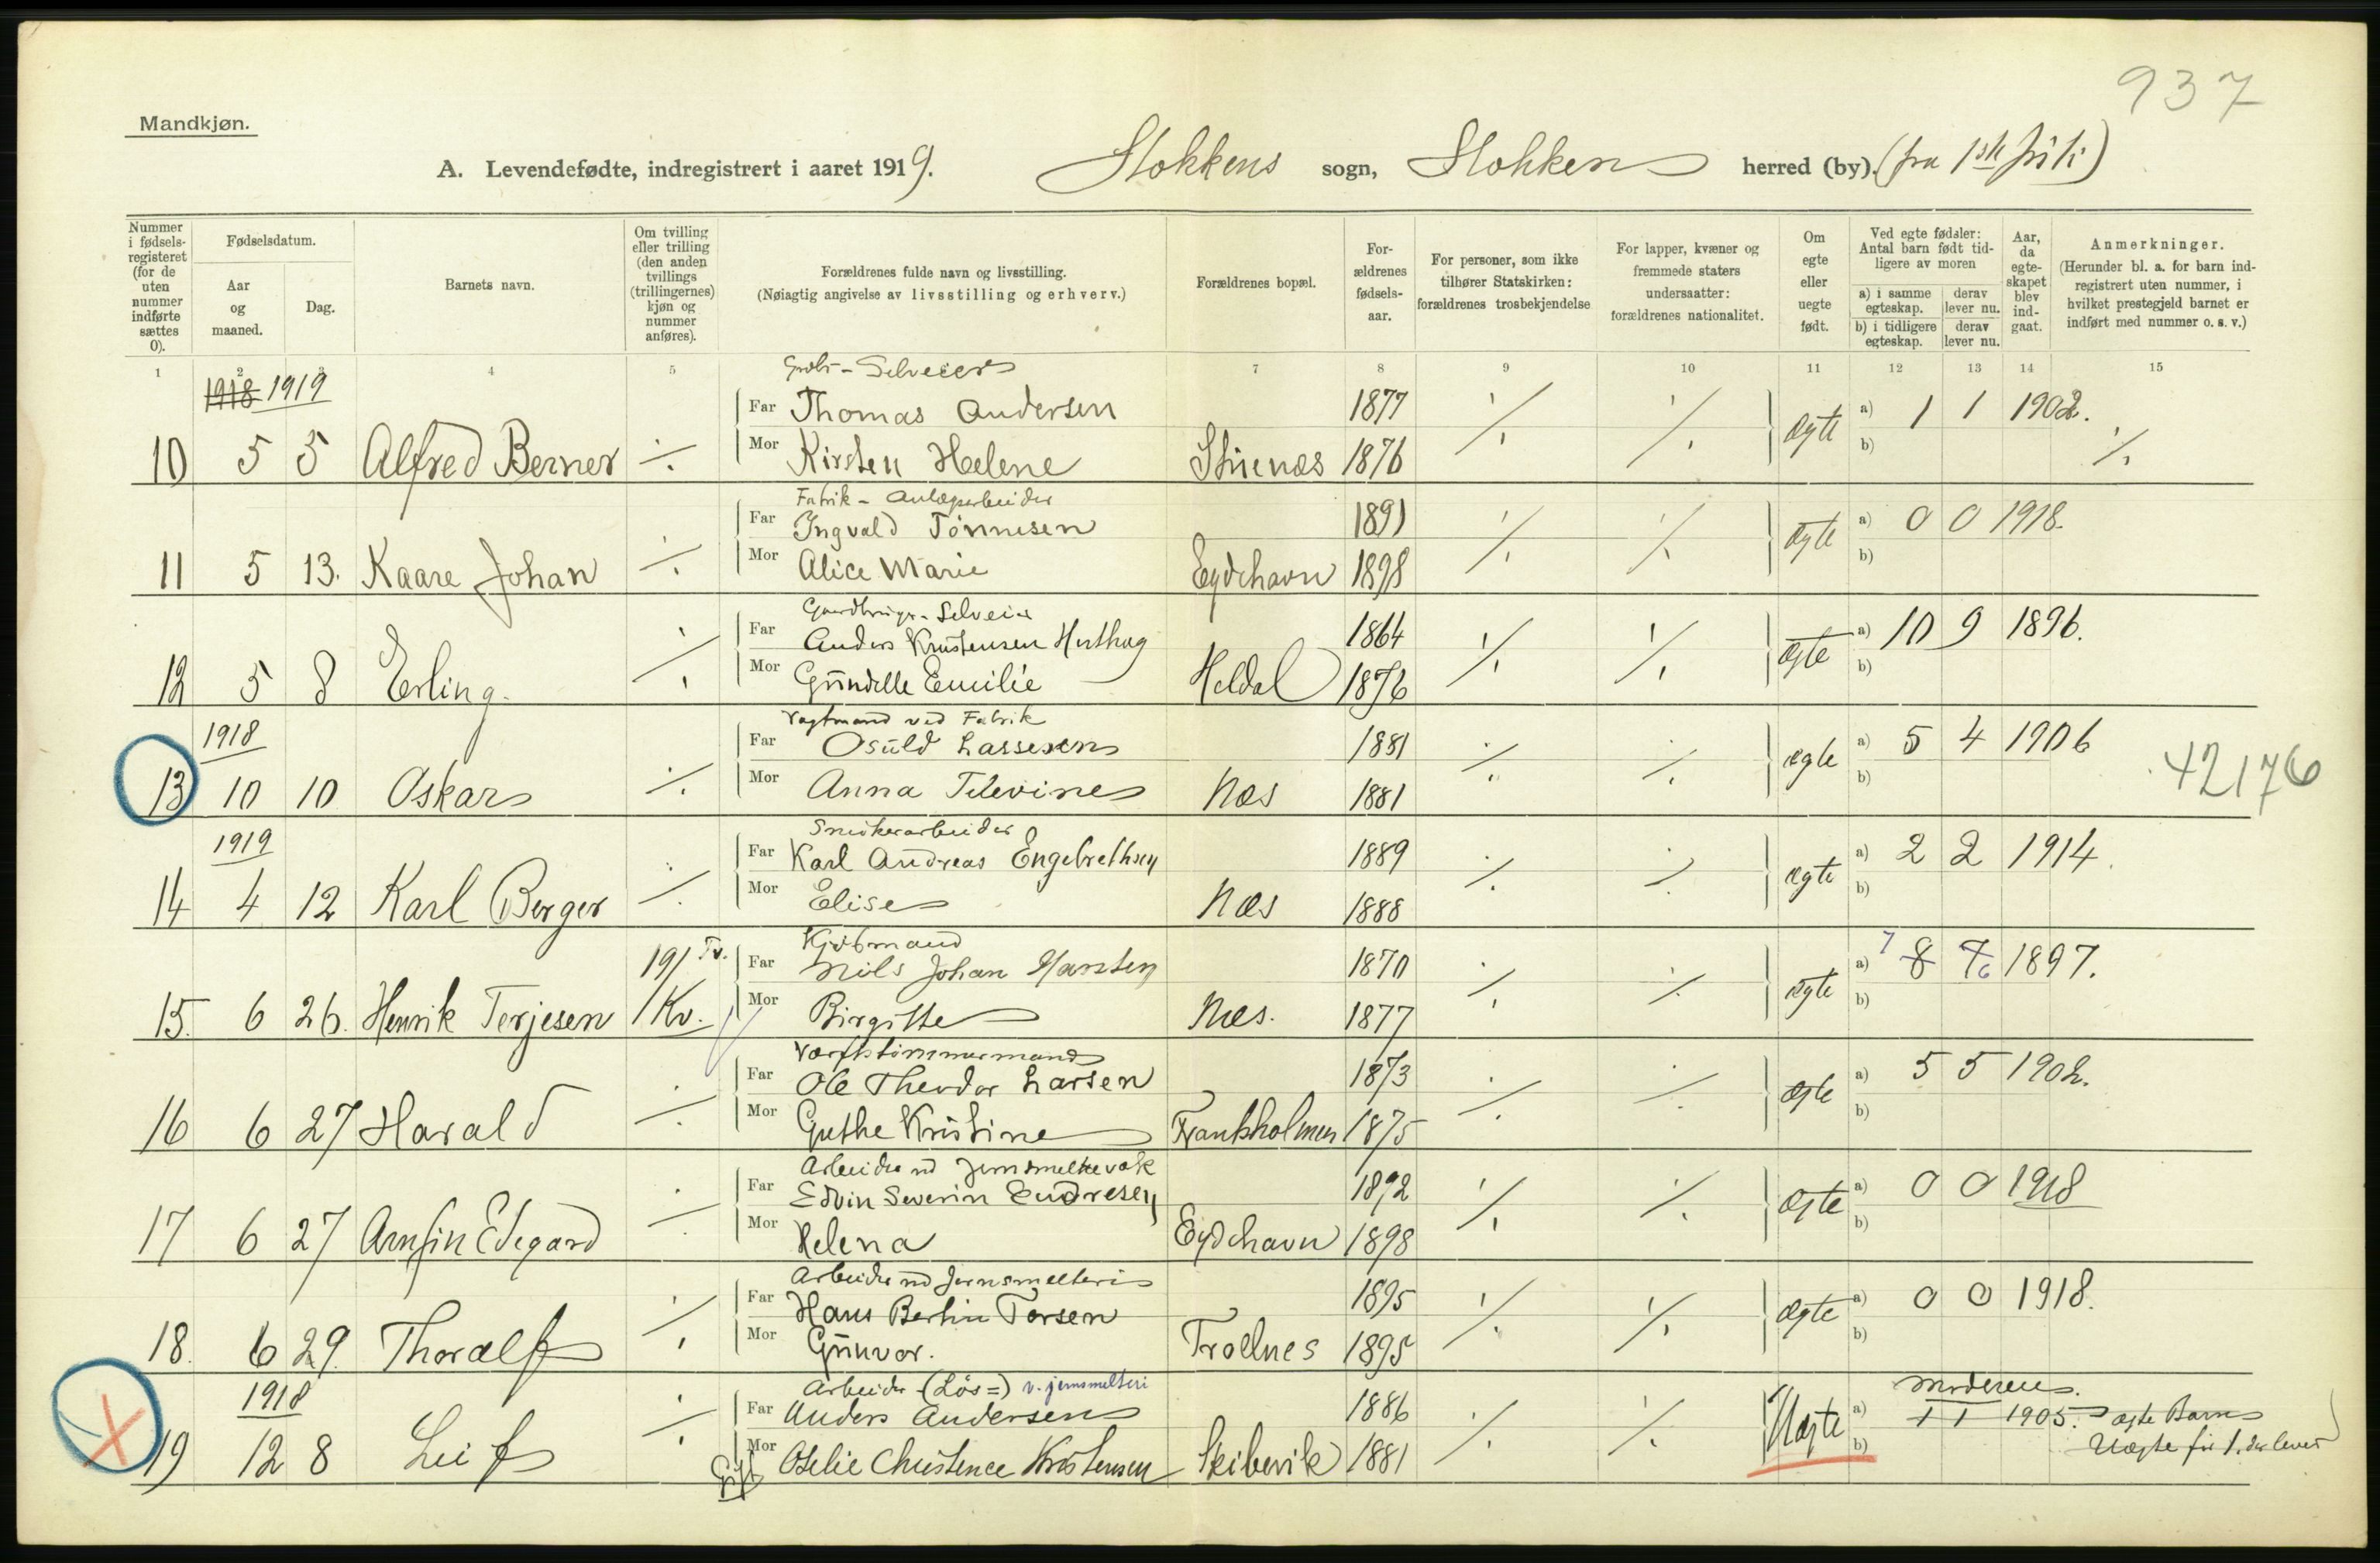 937
Mandkjøn.
A. Levendefødte, indregistrert i aaret 1919. Stokkens sogn, Stokken herred (by).
Nummer i fødsels-registeret (for de uten nummer indførte sættes 0).
Fødselsdatum.
Aar og maaned.
Dag.
Barnets navn.
Om tvilling eller trilling (den anden tvillings (trillingernes) kjøn og nummer anføres).
Forældrenes fulde navn og livsstilling.
(Nøiagtig angivelse av livsstilling og erhverv.)
Forældrenes bopæl.
For-ældrenes fødsels-aar.
For personer, som ikke tilhører Statskirken: forældrenes trosbekjendelse
For lapper, kvæner og fremmede staters undersaatter: forældrenes nationalitet.
Om egte eller uegte født.
Ved egte fødsler: Antal barn født tid-ligere av moren
a) i samme egteskap. derav lever nu.
b) i tidligere egteskap. derav lever nu.
Aar, da egte-skapet blev ind-gaat.
Anmerkninger.
(Herunder bl. a. for barn ind-registrert uten nummer, i hvilket prestegjeld barnet er indført med nummer o. s. v.)
1 2 3 4 5 7 8 9 10 11 12 13 14 15
1918 1919
Selveier
Far Thomas Andersen 1877 a) 1 1 1902.
10 5 5 Alfred Berner ./. Mor Kirsten Helene 1876 ./. ./. ægte b) ./.
Fabrik-Anlægsarbeider
Far Ingvald Tönnesen 1891 a) 0 0 1918.
11 5 13. Kaare Johan ./. Mor Alice Marie Eydehavn 1898 ./. ./. ægte b)
Gaardbruger-Selveier
Far Anders Kristensen 1864 a) 10 9 1896.
12 5 8 Erling. ./. Mor Gündelle Emilie Heldal 1876 ./. ./. ægte b)
1918
Vagtmand ved Fabrik
Far Osüld Lassesen 1881 a) 5 4 1906
13 10 10 Oskar ./. Mor Anna Televine Næs 1881 ./. ./. ægte b) 42176
1919
Snekerarbeider
Far Karl Andreas Engebrethsen 1889 a) 2 2 1914.
14 4 12 Karl Berger ./. Mor Elise Næs 1888 ./. ./. ægte b)
Kjöbmand
19/ Tv. Far Nils Johan Hansen 1870 a) 7 8 7 6 1897.
15. 6 26. Henrik Terjesen 1 Kv. Mor Birgitte Næs. 1877 ./. ./. ægte b)
Værftstömmermand
Far Ole Theodor Larsen 1873 a) 5 5 1902.
16 6 27 Harald ./. Mor Guthe Kristine Frankholmen 1875 ./. ./. ægte b)
Arbeider ved Jernsmelteverk
Far Edvin Severin Endresen 1892 a) 0 0 1918
17 6 27 Arnfin Edegard ./. Mor Helena Eydehavn 1898 ./. ./. ægte b)
Arbeider ved Jernsmelteri
Far Hans Bertin Torsen 1895 a) 0 0 1918.
18. 6 29. Thoralf ./. Mor Günvor. Trollnes 1895 ./. ./. ægte b)
1918
Arbeider (Lös=) v. jernsmelteri Moderen.
Far Anders Andersen 1886 a) 1 1 1905. ægte Barn
19 12 8 Leif ./. Gift Mor Oselie Christence Kristensen Skibevik 1881 ./. ./. Uægte b) Uægte før 1. der lever